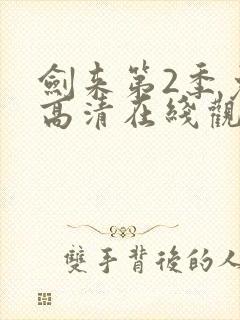 劍来第2季
高清在綫觀
雙手背後的人